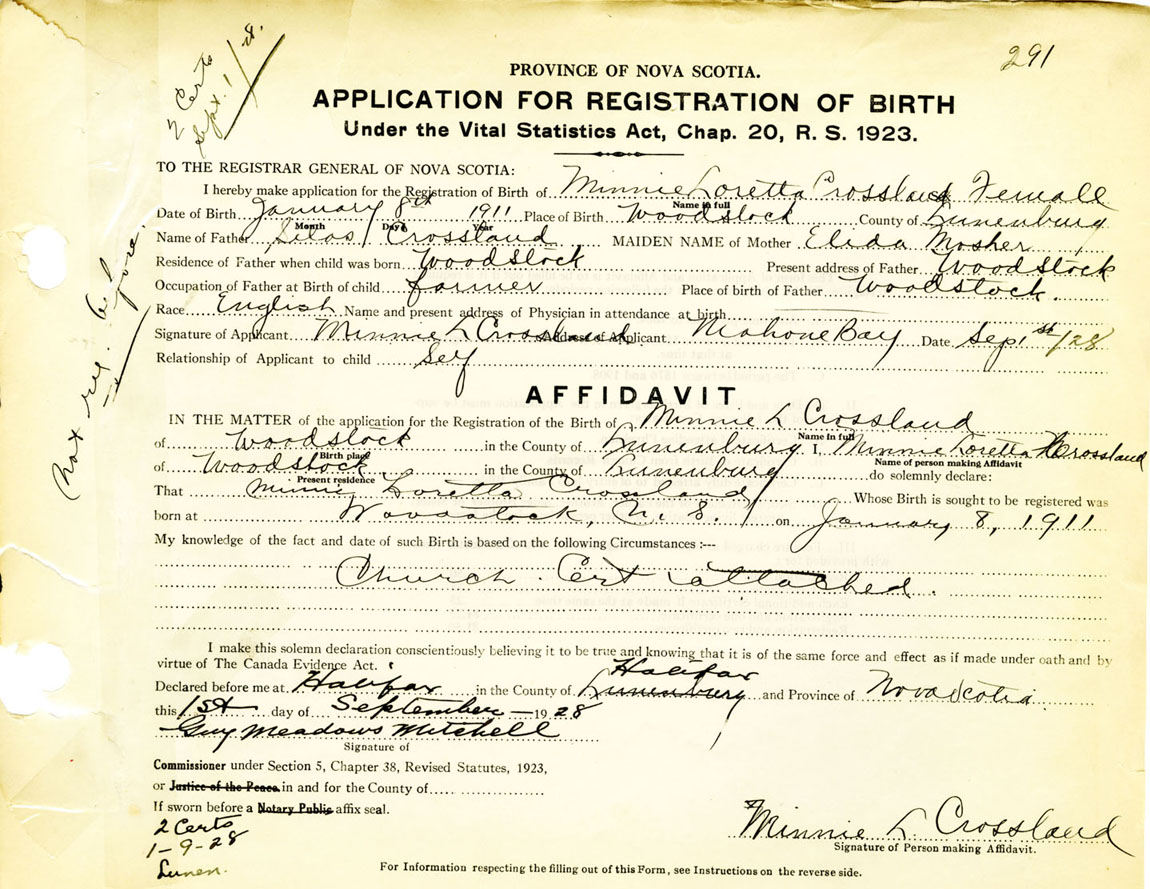 291
2 Certs
Sept. 1/28.
PROVINCE OF NOVA SCOTIA.
APPLICATION FOR REGISTRATION OF BIRTH
Under the Vital Statistics Act, Chap. 20, R. S. 1923.
TO THE REGISTRAR GENERAL OF NOVA SCOTIA:
I hereby make application for the Registration of Birth of Minnie Loretta Crossland Female
Name in full
Date of Birth January 8th 1911 Place of Birth Woodstock County of Lunenburg
Month Day Year
Name of Father Silas Crossland MAIDEN NAME of Mother Elida Mosher
Residence of Father when child was born Woodstock Present address of Father Woodstock
Occupation of Father at Birth of child farmer Place of birth of Father Woodstock.
Race English Name and present address of Physician in attendance at birth
Signature of Applicant Minnie L Crossland Address of Applicant Mahone Bay Date Sep 1st/28
Relationship of Applicant to child Self
Not reg. before.
AFFIDAVIT
IN THE MATTER of the application for the Registration of the Birth of Minnie L Crossland
Name in full
of Woodstock in the County of Lunenburg I, Minnie Loretta Crossland
Birth place Name of person making Affidavit
of Woodstock in the County of Lunenburg do solemnly declare:
Present residence
That Minnie Loretta Crossland Whose Birth is sought to be registered was
born at Woodstock, N. S. on January 8, 1911
My knowledge of the fact and date of such Birth is based on the following Circumstances :---
Church Cert attached.
I make this solemn declaration conscientiously believing it to be true and knowing that it is of the same force and effect as if made under oath and by
virtue of The Canada Evidence Act.
Halifax
Declared before me at Halifax in the County of Lunenburg and Province of Nova Scotia
this 1st day of September 1928
Guy Meadows Mitchell
Signature of
Commissioner under Section 5, Chapter 38, Revised Statutes, 1923,
or Justice of the Peace in and for the County of
If sworn before a Notary Public affix seal.
2 Certs
1-9-28
Lunen.
Minnie L. Crossland
Signature of Person making Affidavit.
For Information respecting the filling out of this Form, see Instructions on the reverse side.